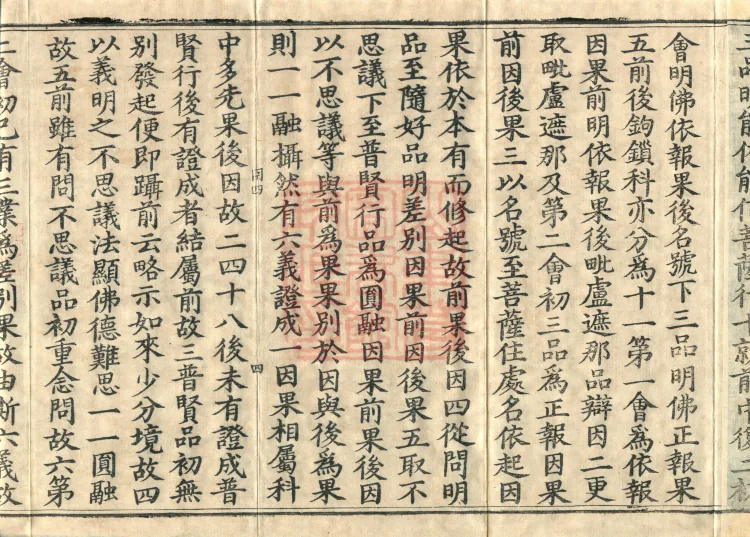 三品明能依能化菩薩行十就前中後二初
會明佛依報果後名號下三品明佛正報果
五前後鉤鎖科亦分爲十一第一會爲依報
因果前明依報果後毗盧遮那品辯因二更
取毗盧遮那及第二會初三品爲正報因果
前因後果三以名號至菩薩住處名依起因
果依於本有而修起故前果後因四從問明
品至隨好品明差別因果前因後果五取不
思議下至普賢行品爲圓融因果前果後因
以不思議等與前爲果果別於因與後爲果
則一一融攝然有六義證成一因果相屬科
四
中多先果後因故二四十八後未有證成普
賢行後有證成者結屬前故三普賢品初無
別發起便即躡前云略示如來少分境故四
以義明之不思議法顯佛德難思一一圓融
故五前雖有問不思議品初重念問故六第
二會初已有三業爲差別果故由斯六義故